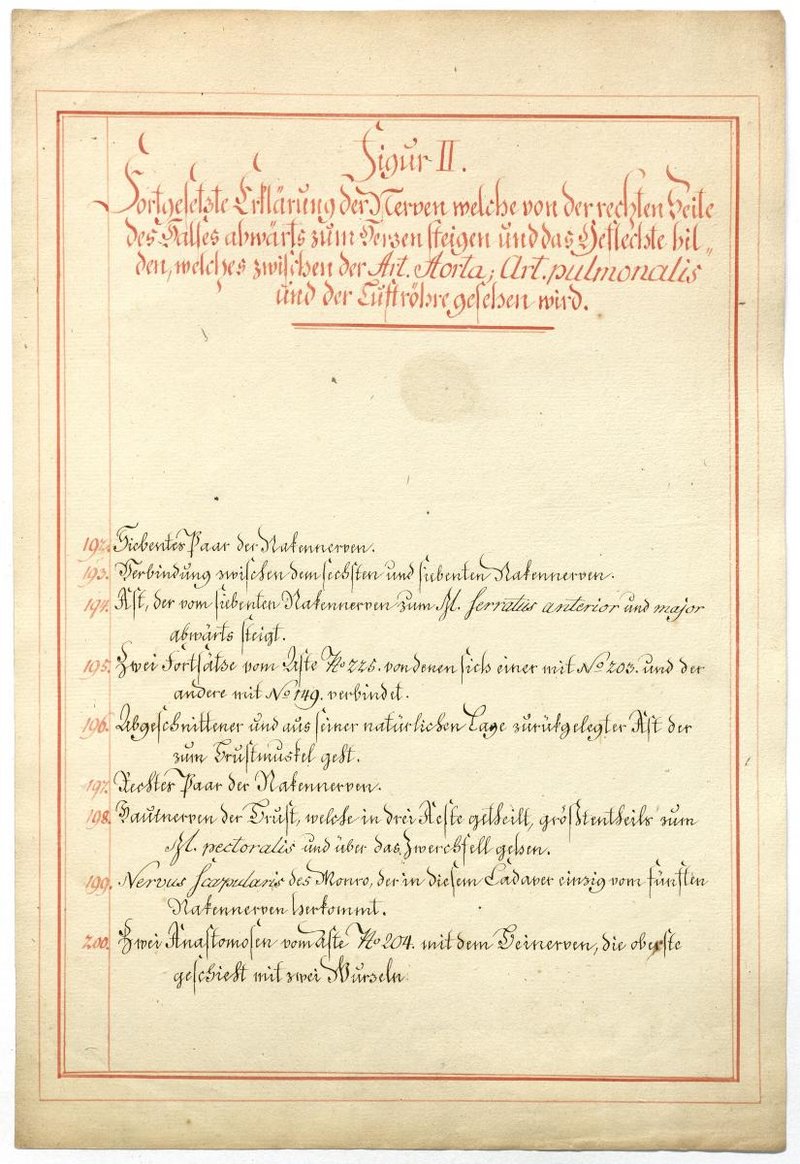 Figur II.
Fortgesetzte Erklärung der Nerven welche von der rechten Seite
des Halses abwärts zum Herzen steigen und das Geflechte bil„
den, welches zwischen der Art. Aorta; Art. pulmonalis
und der Luftröhre gesehen wird.
192. Siebentes Paar der Nakennerven.
193. Verbindung zwischen dem sechsten und siebenten Nakennerven.
194. Ast, der vom siebenten Nakennerven zum M. serratus anterior und major
abwärts steigt.
195. Zwei Fortsätze vom Aste No 225. von denen sich einer mit No 203. und der
andere mit No 149. verbindet.
196. Abgeschnittener und aus seiner natürlichen Lage zurükgelegter Ast der
zum Brustmuskel geht.
197. Paar der Nakennerven.
198. Hautnerven der Brust, welche in drei Aeste getheilt, größtentheils zum
M. pectoralis und über das Zwerchfell gehen.
199. Nervus scapularis des Monro, der in diesem Cadaver einzig vom fünften
Nakennerven herkommt.
200. Zwei Anastomosen vom Aste No 204. mit dem Beinerven, die oberste
geschieht mit zwei Wurzeln